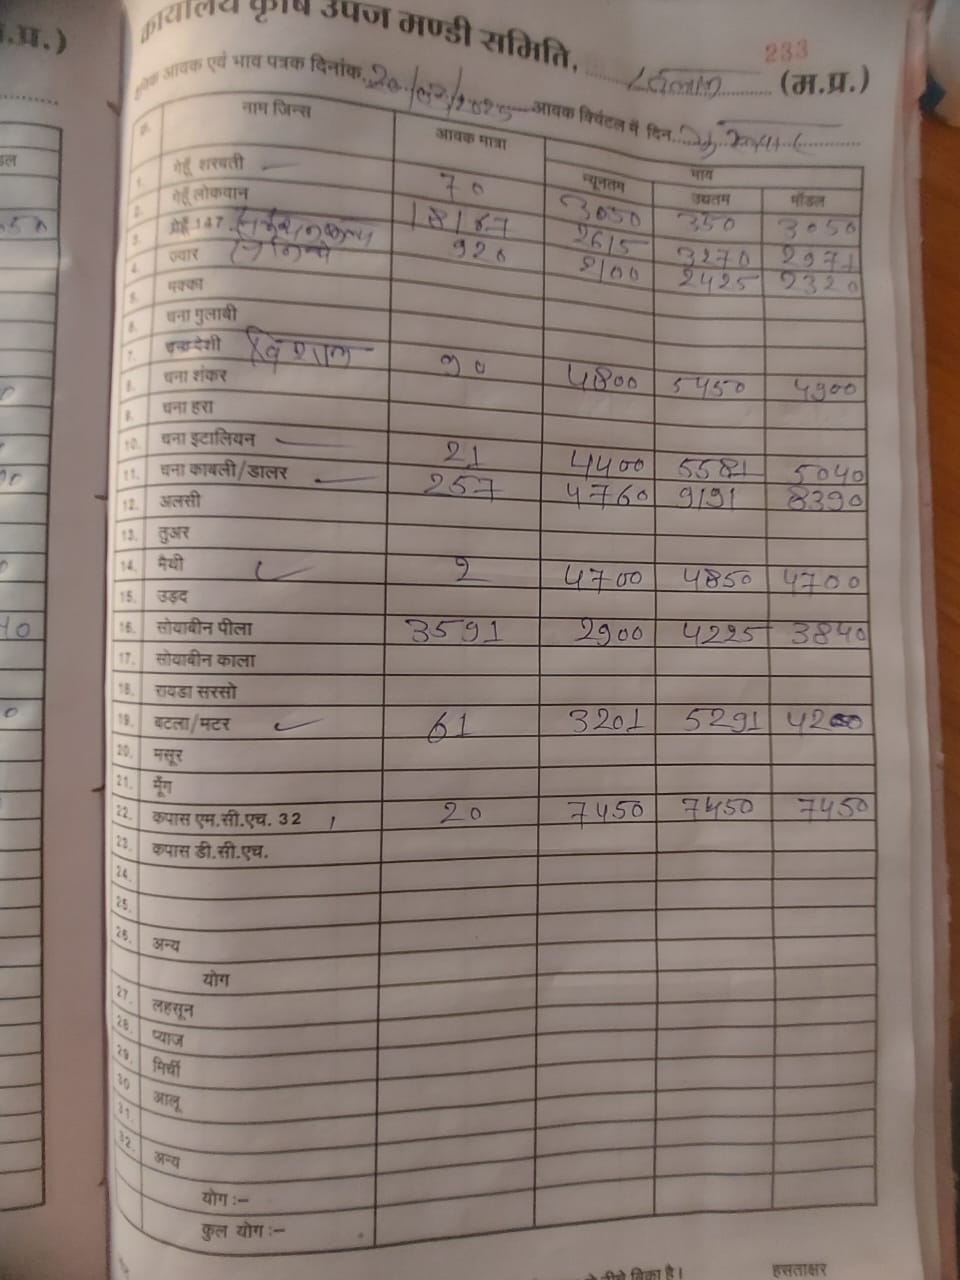 कार्यालय कृषि उपज मण्डी समिति, रतलाम (म.प्र.)
233
दैनिक आवक एवं भाव पत्रक दिनांक 20/03/2025 आवक क्विंटल में दिन
क्र. नाम जिन्स आवक मात्रा भाव
न्यूनतम उच्चतम मॉडल
1. गेहूँ शरबती 70 3050 350 3050
2. गेहूँ लोकवान 18167 2615 3270 2971
3. गेहूँ 147 920 2100 2425 2320
4. ज्वार
5. मक्का
6. चना गुलाबी
7. चना देशी विशाल 90 4800 5450 4900
8. चना शंकर
9. चना हरा
10. चना इटालियन 21 4400 5581 5040
11. चना काबली/डालर 257 4760 9191 8390
12. अलसी
13. तुअर
14. मैथी 2 4700 4850 4700
15. उड़द
16. सोयाबीन पीला 3591 2900 4225 3840
17. सोयाबीन काला
18. रायडा सरसो
19. बटला/मटर 61 3201 5291 4200
20. मसूर
21. मूँग
22. कपास एम.सी.एच. 32 20 7450 7450 7450
23. कपास डी.सी.एच.
24.
25.
26. अन्य
योग
27. लहसून
28. प्याज
29. मिर्ची
30 आलू
31.
32. अन्य
योग :–
कुल योग :–
बिका है।
हसताक्षर
.प्र.)